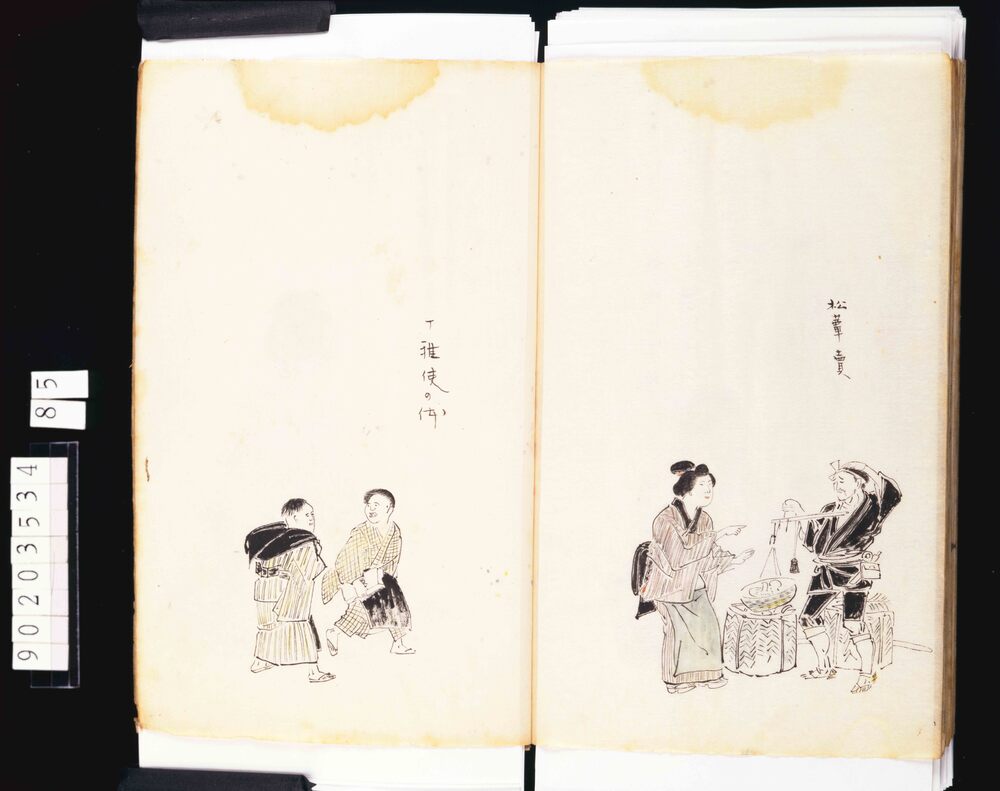 松蕈賣
丁稚使の体
85
90203534